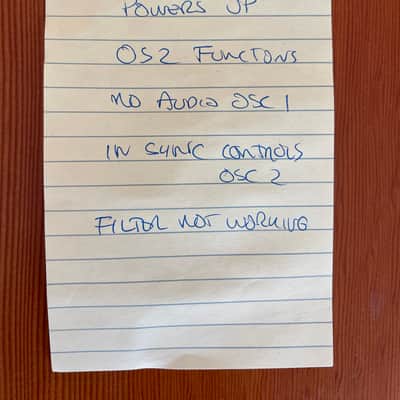 POWERS UP
OS2 FUNCTONS
NO AUDIO OSC 1
IN SYNC CONTROLS
OSC 2
FILTER NOT WORKING